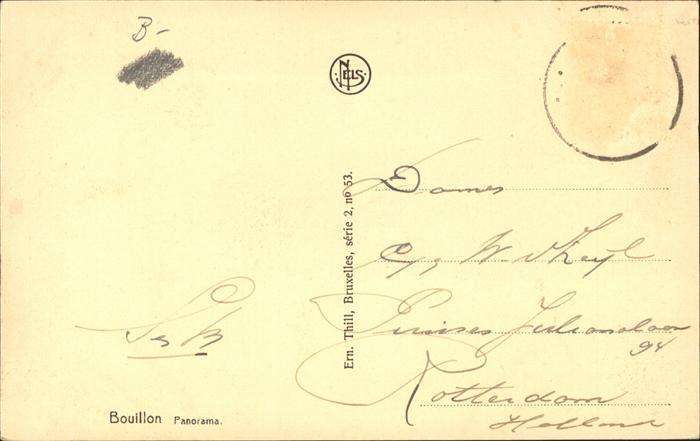 B-
NELS
Ern. Thill, Bruxelles, série 2, no 53.
Dames
W.
Prinses Julianalaan
94
Rotterdam
Holland
Bouillon Panorama.